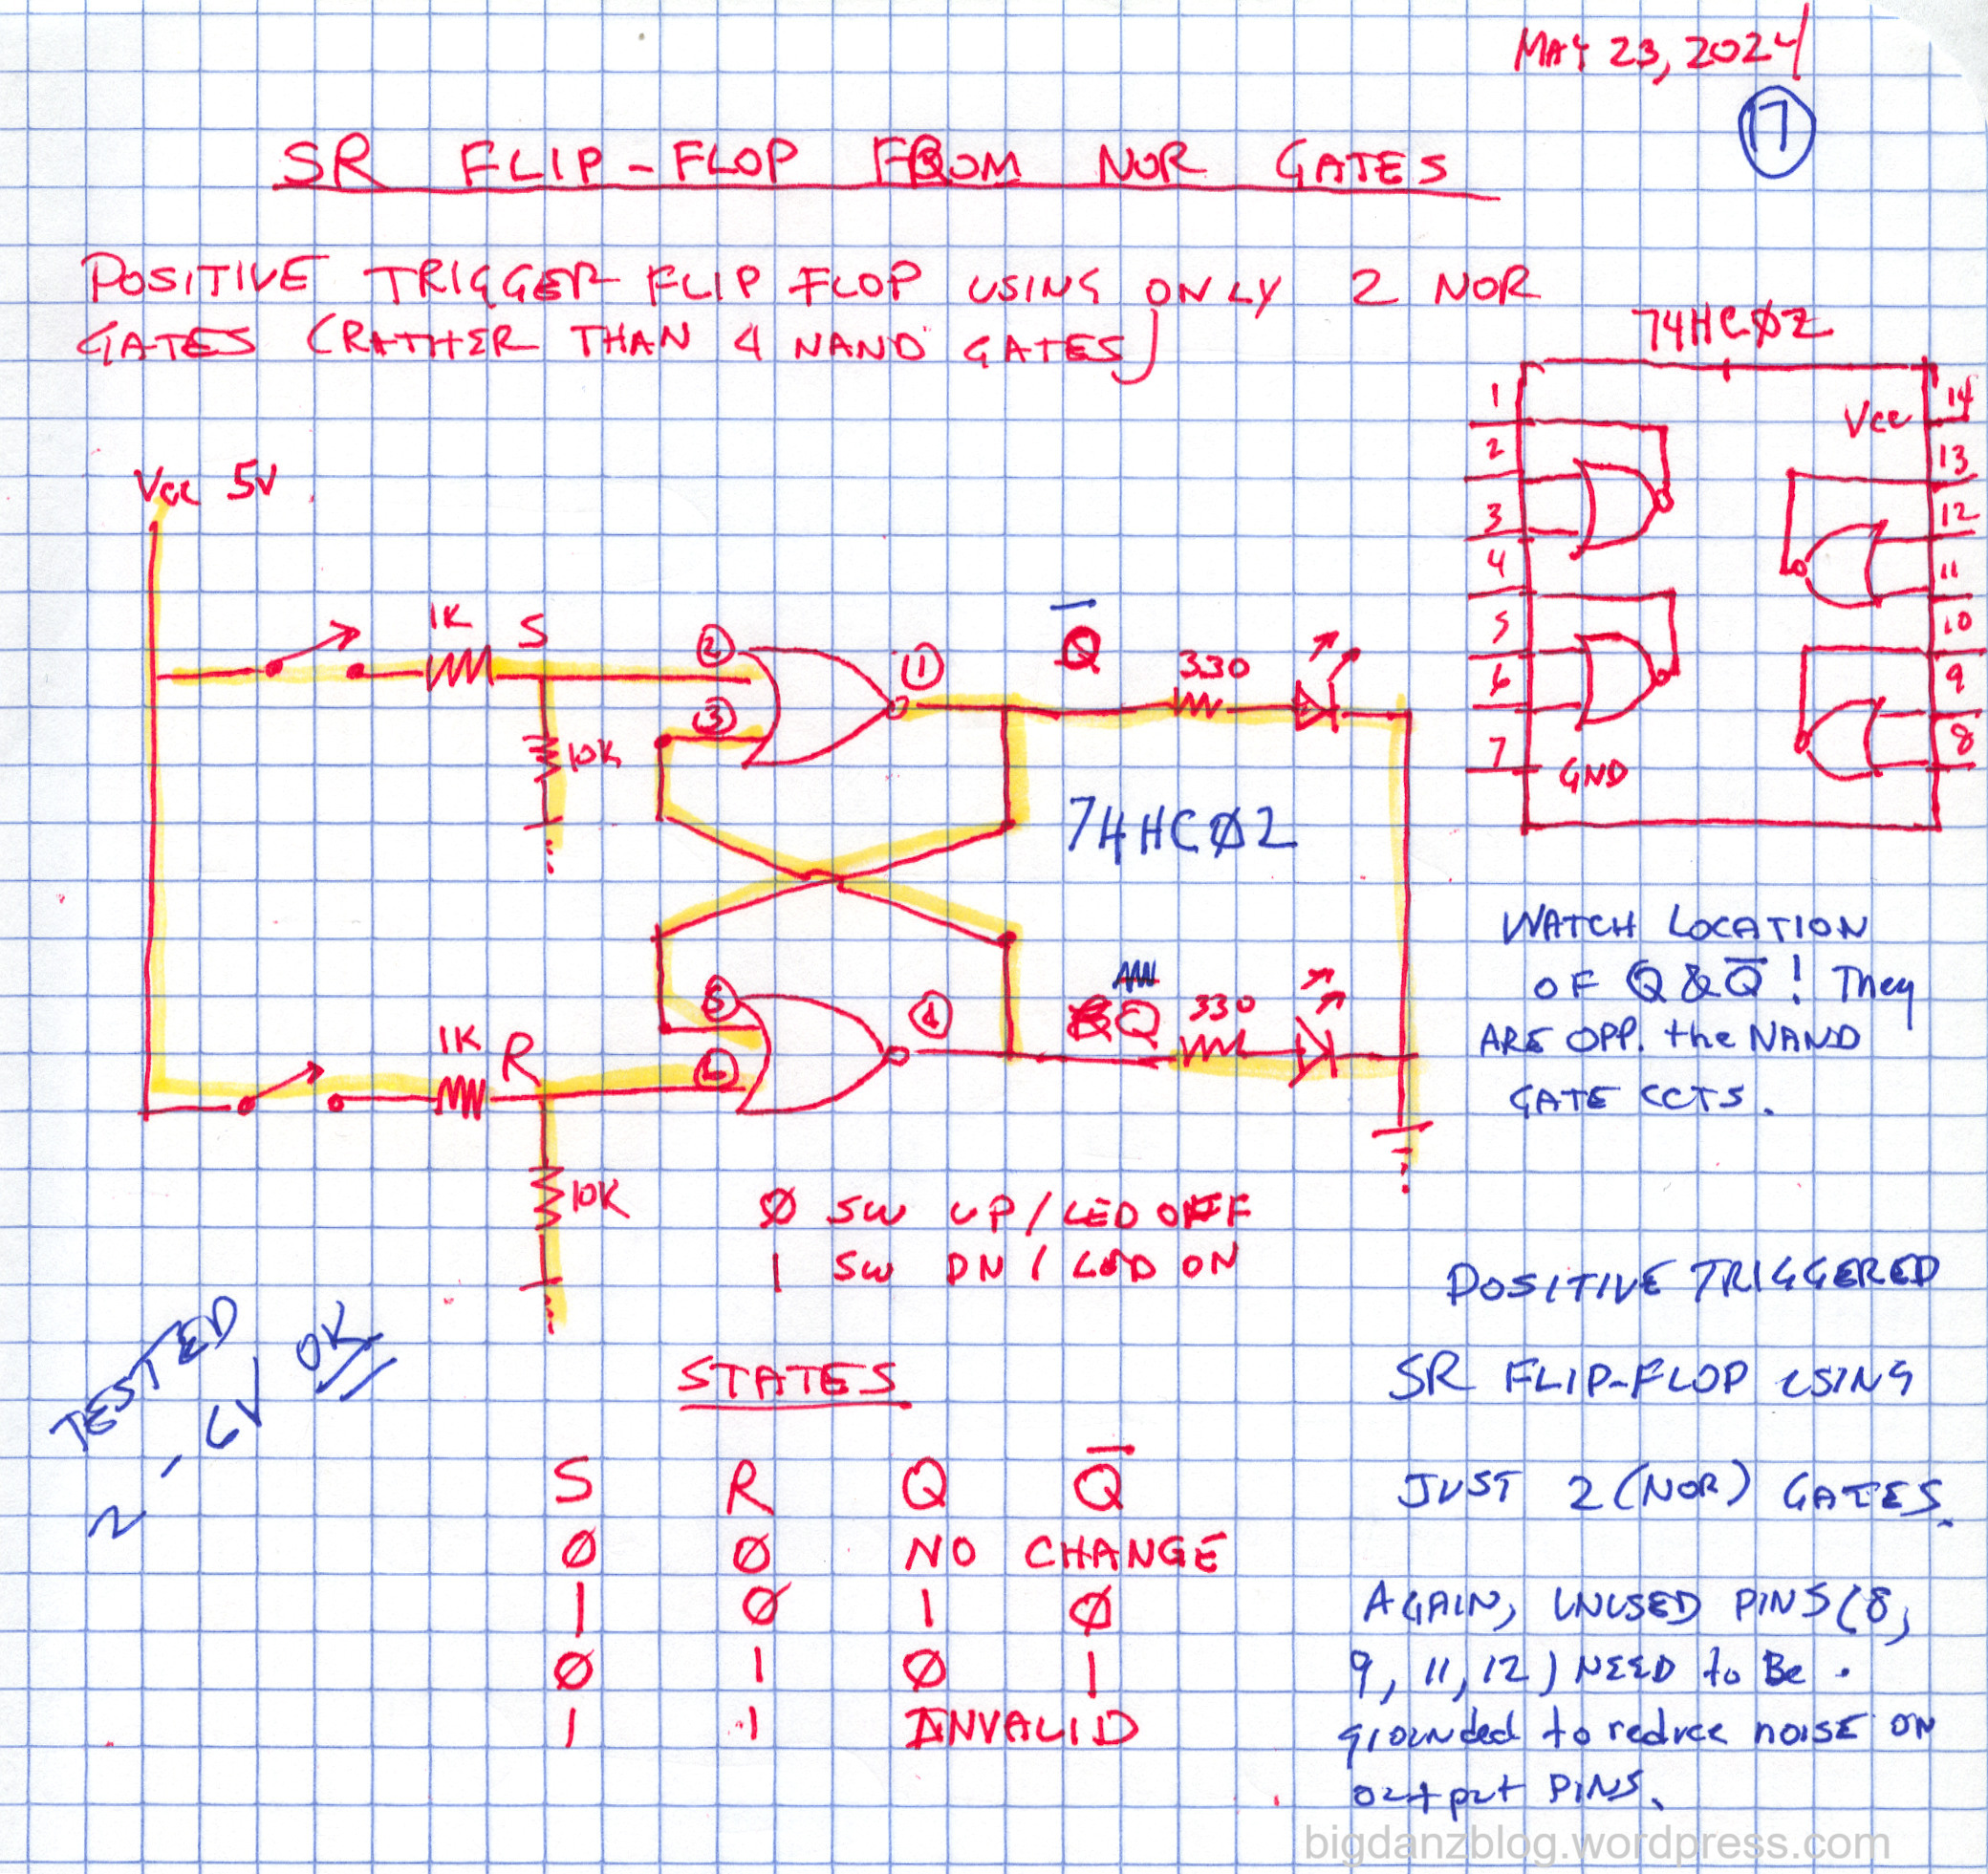 MAY 23, 2024
17
SR FLIP-FLOP FROM NOR GATES
POSITIVE TRIGGER FLIP FLOP USING ONLY 2 NOR
GATES (RATHER THAN 4 NAND GATES)
74HCØ2
1
2
3
4
5
6
7
GND
Vcc
14
13
12
11
10
9
8
Vcc 5V
1K
S
10K
2
3
1
Q̅
330
74HCØ2
1K
R
10K
5
6
4
Q
330
WATCH LOCATION
OF Q & Q̅! They
ARE OPP. the NAND
GATE CCTS.
Ø SW UP/LED OFF
1 SW DN/LED ON
TESTED
2-6V OK
STATES
S R Q Q̅
Ø Ø NO CHANGE
1 Ø 1 Ø
Ø 1 Ø 1
1 1 INVALID
POSITIVE TRIGGERED
SR FLIP-FLOP USING
JUST 2 (NOR) GATES.
AGAIN, UNUSED PINS (8,
9, 11, 12) NEED to Be
grounded to reduce noise on
output PINS.
bigdanzblog.wordpress.com